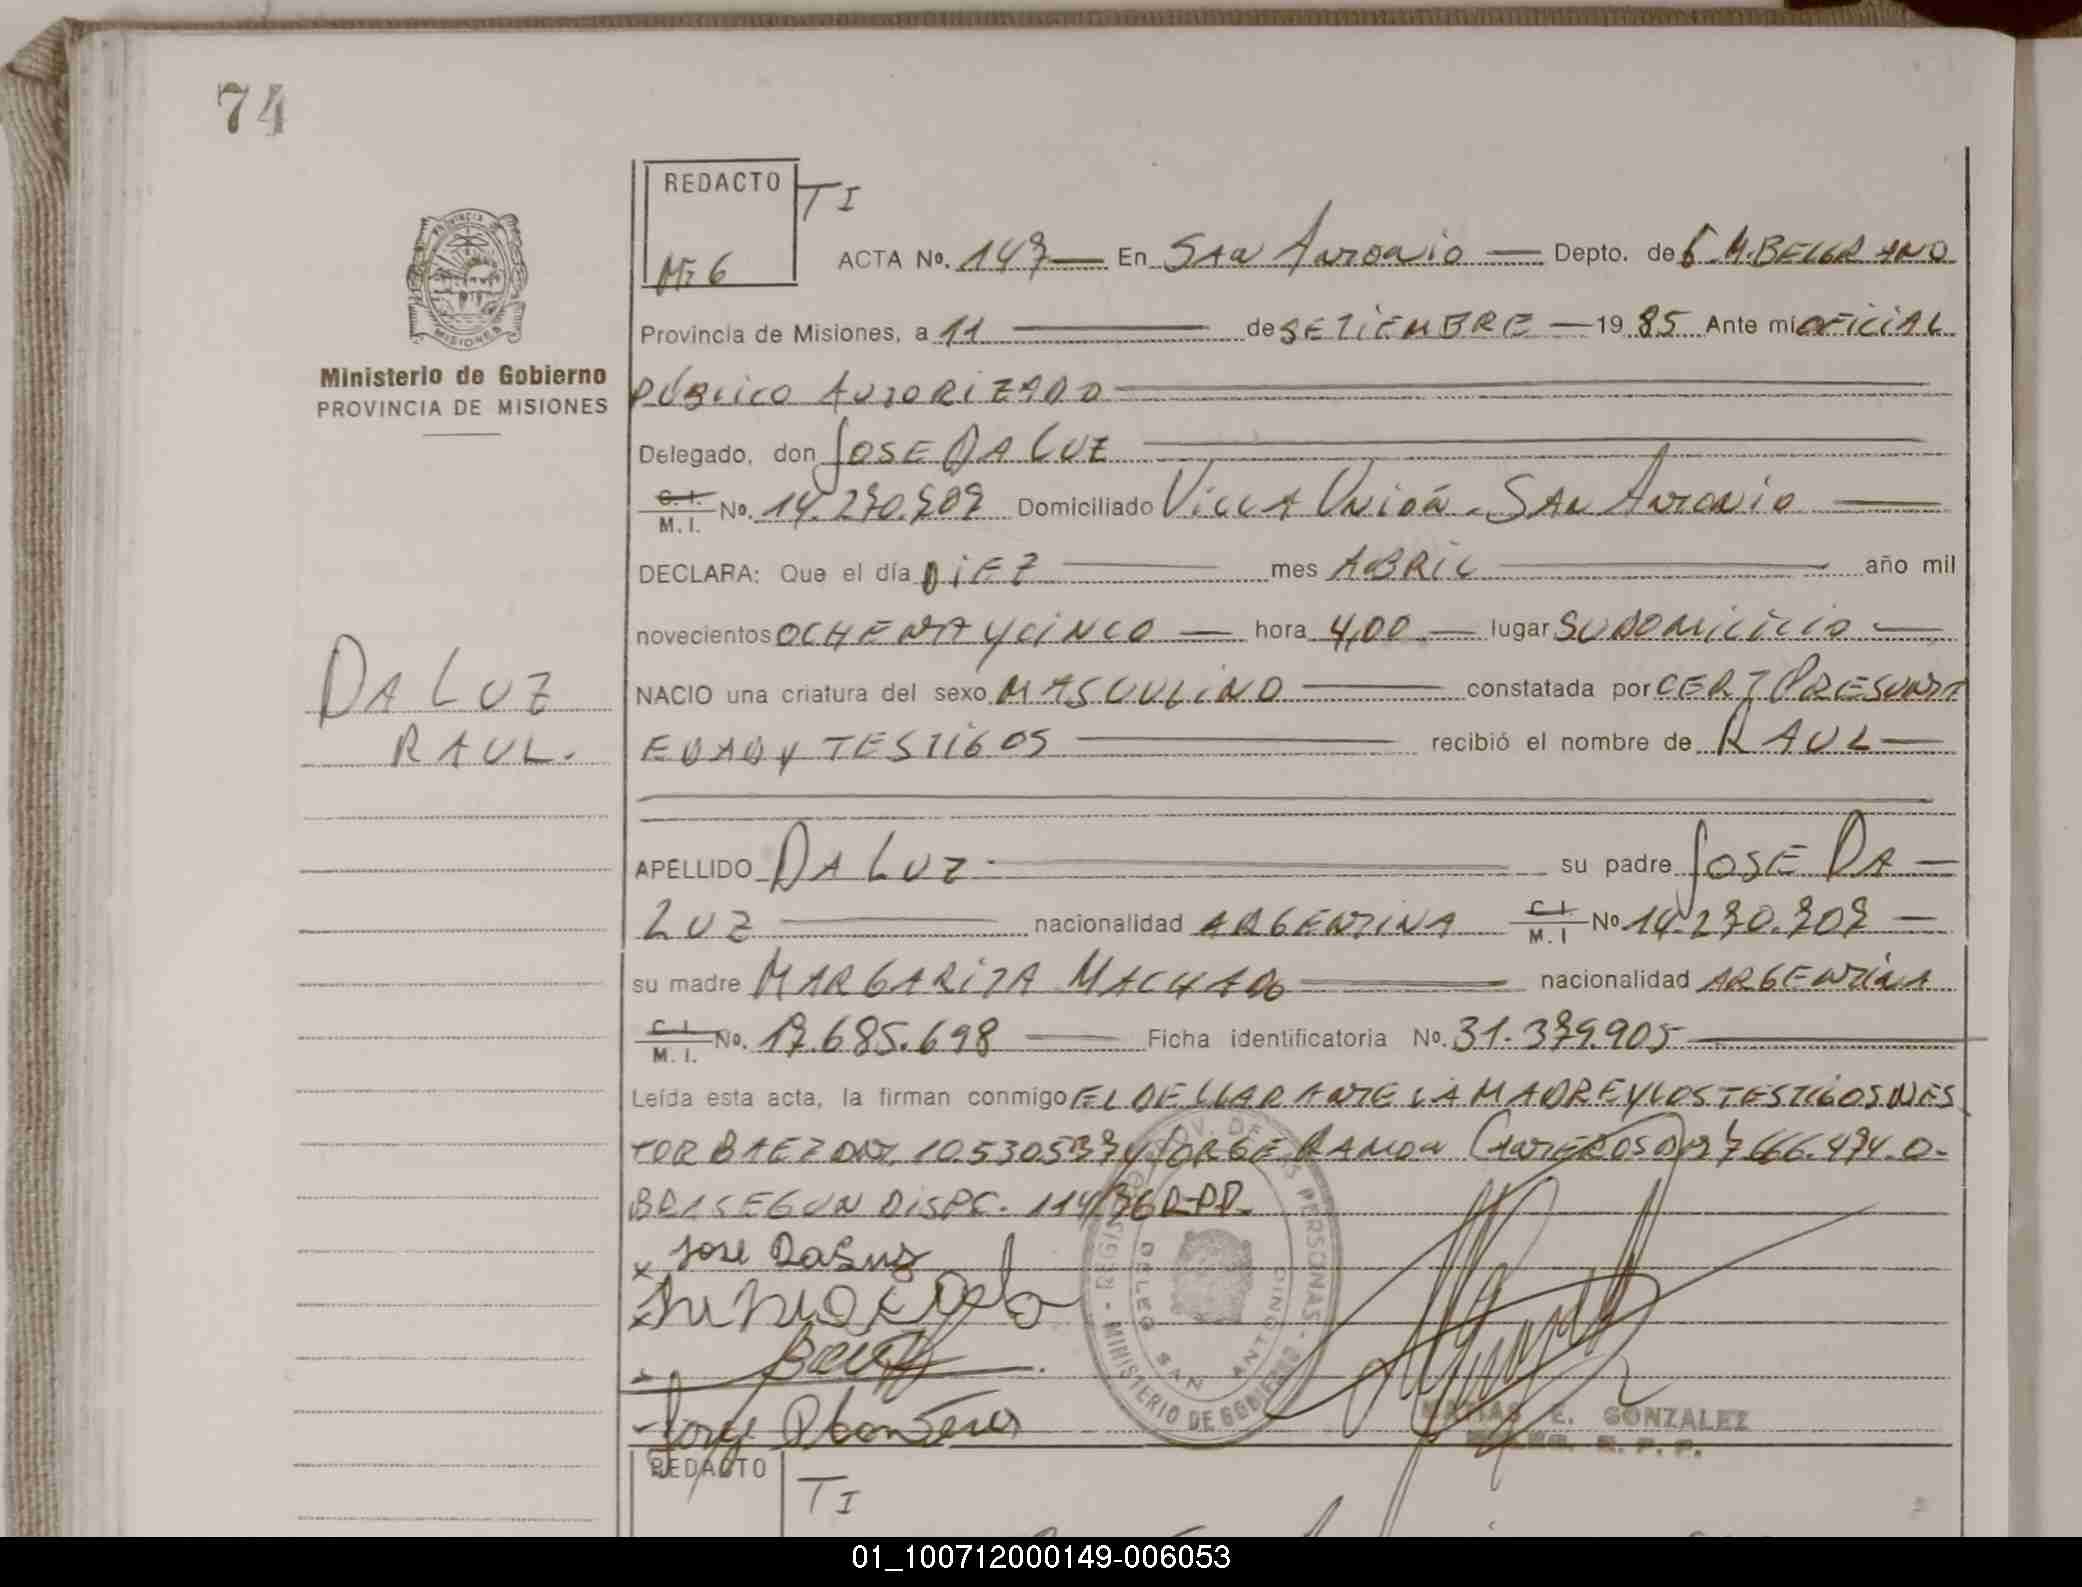 74
REDACTO
TI
Mr 6
PROVINCIA DE MISIONES
ACTA No. 147 En SAN ANTONIO Depto. de G. M. BELGRANO
Provincia de Misiones, a 11 de SETIEMBRE 1985 Ante mi OFICIAL
Ministerio de Gobierno
PROVINCIA DE MISIONES
PÚBLICO AUTORIZADO
Delegado, don JOSE DA LUZ
C. I. M. I. No. 14.270.707 Domiciliado VILLA UNIÓN - SAN ANTONIO
DECLARA: Que el día DIEZ mes ABRIL año mil
novecientos OCHENTA Y CINCO hora 4,00 lugar SU DOMICILIO
DA LUZ
RAUL.
NACIO una criatura del sexo MASCULINO constatada por CERT PRESUNTA
EDAD Y TESTIGOS recibió el nombre de RAUL
APELLIDO DA LUZ su padre JOSE DA
LUZ nacionalidad ARGENTINA C. I. M. I No 14.270.707
su madre MARGARITA MACHADO nacionalidad ARGENTINA
C. I. M. I. No. 17.685.698 Ficha identificatoria No. 31.379.905
Leída esta acta, la firman conmigo EL DECLARANTE LA MADRE Y LOS TESTIGOS NES
TOR BAEZ DNI. 10.530.537 Y JORGE RAMON 7.666.474. O-
BRA SEGUN DISPC. 114/76 R-PP.
Jose Da Luz
Jorge
MINISTERIO DE GOBIERNO
PERSONAS
DELEG SAN ANTONIO
MATIAS E. GONZALEZ
R. P. P.
REDACTO
TI
01_100712000149-006053